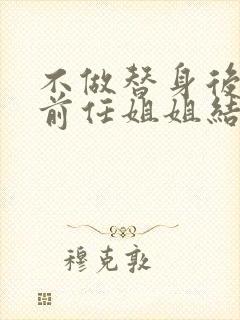 不做替身後
前任姐姐結
穆克敦